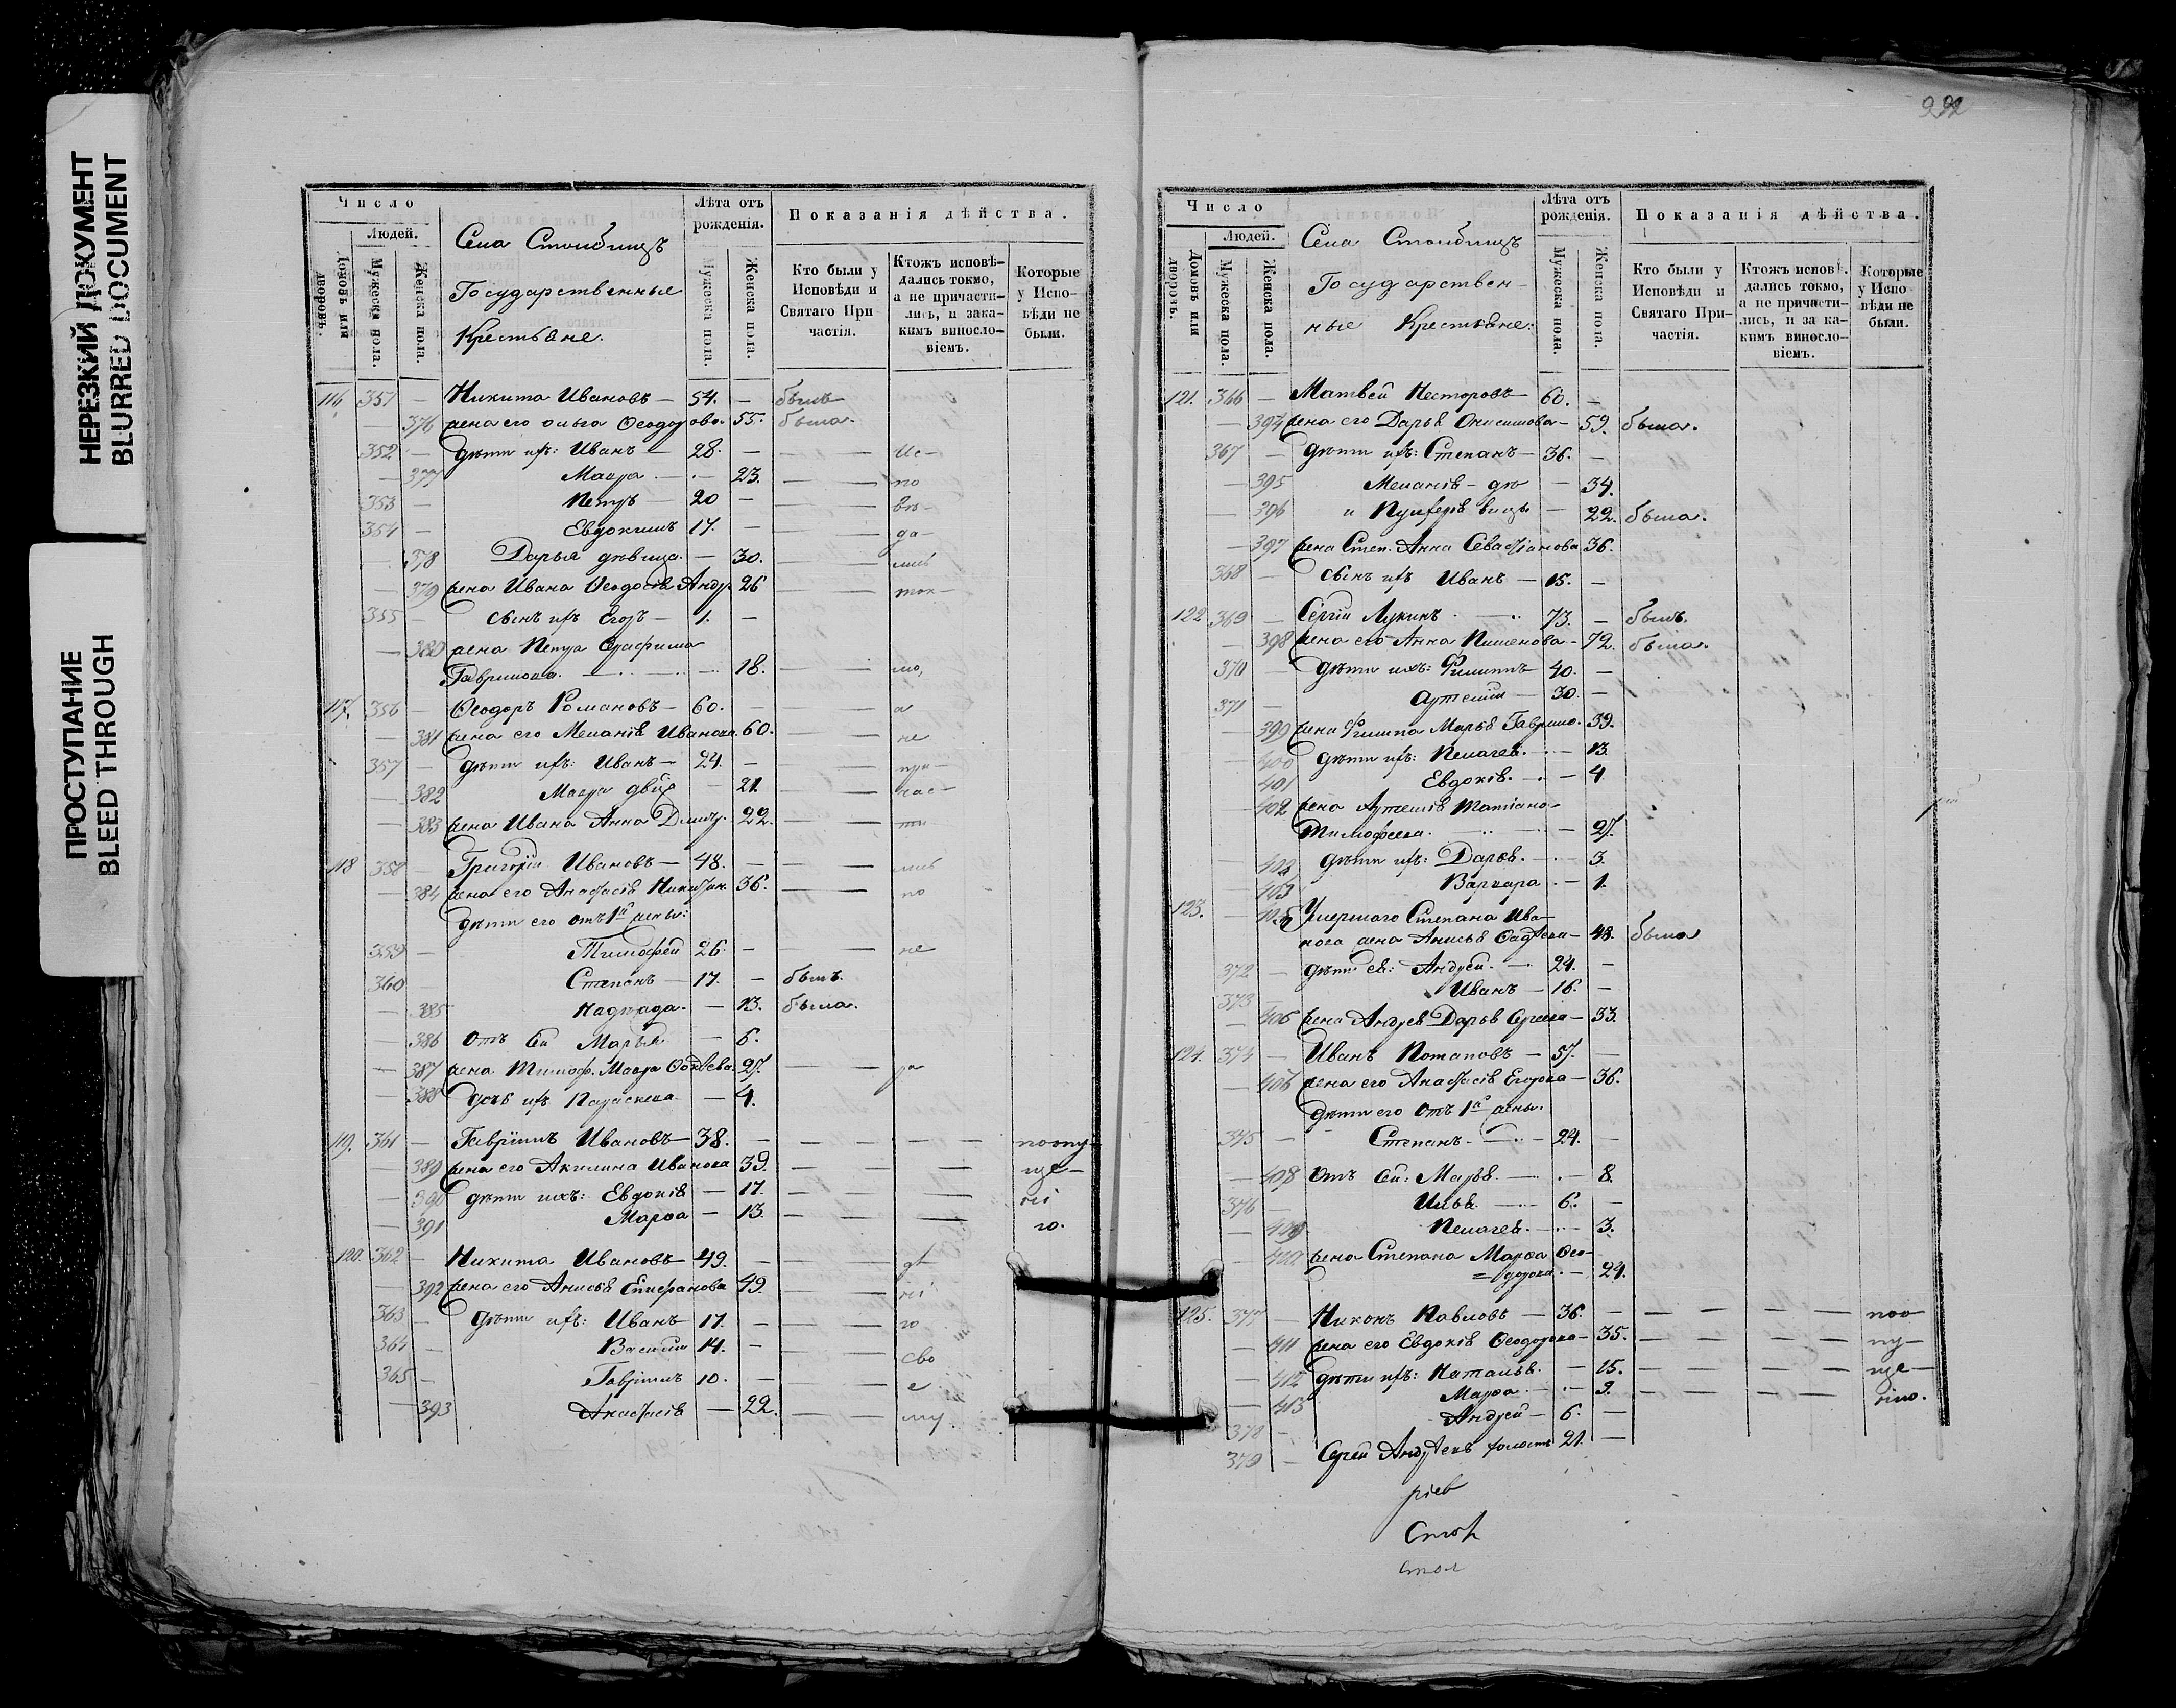 НЕРЕЗКИЙ ДОКУМЕНТ
BLURRED DOCUMENT
ПРОСТУПАНИЕ
BLEED THROUGH
Число
Людей.
Домовъ или дворовъ.
Мужеска пола.
Женска пола.
Села Столбищъ
Государственные
Крестьяне.
Лѣта отъ рожденія.
Мужеска пола
Женска пола.
Показанія дѣйства.
Кто были у Исповѣди и Святаго Причастія.
Ктожъ исповѣдались токмо, а не причастились, и за какимъ винословіемъ.
Которые у Исповѣди не были.
116 351 — Никита Ивановъ — 54. — былъ
— 376 жена его Ольга Ѳеодорова. 55. была.
352 — дѣти ихъ: Иванъ — 28. — — — Ис-
— 377 Мавра — 23. — — по
353 — Петръ — 20 — — — вѣ-
354 — Евдокимъ 17. — — — да-
378 Дарья дѣвица. — 30. — — лись
— 379 жена Ивана Ѳеодосія Андр. 26 — — ток-
355 — сынъ ихъ Егоръ — 1. —
— 380 жена Петра
Гаврилова. — 18. — — мо,
117. 356 — Ѳеодоръ Романовъ — 60. — — — а
— 381 жена его Меланія Иванова. 60. — — не
357 — дѣти ихъ: Иванъ — 24. — — — при-
— 382 Мавра — 21. — — час-
— 383 жена Ивана Анна 22. — — ти-
118 358 — Григорій Ивановъ — 48. — — — лись
— 384 жена его Анастасія 36. — — по
дѣти его отъ 1й жены:
359 — Тимофей 26. — — — не
360 — Степанъ — 17. — былъ.
— 385 — 13. была.
— 386 отъ Сей Марья — 6.
— 387 жена Тимоф. Мавра 27. — —
— 388 дочь ихъ Параскева — 4.
119. 361 — Гавріилъ Ивановъ — 38. — — — — — поопу-
— 389 жена его Акилина Иванова 39. — — ще-
— 390 дѣти ихъ: Евдокія — 17. — — ні
— 391 Марѳа — 13. — — ю.
120. 362 — Никита Ивановъ — 49. — — —
— 392 жена его Анисья Епифанова 49. — — ні
363 — дѣти ихъ: Иванъ — 17. — — — ю
364 — Василій 14. — — — сво
365 — Гавріилъ 10. — — — е
— 393 Анастасія — 22. — — му.
Число
Людей.
Домовъ или дворовъ.
Мужеска пола.
Женска пола.
Села Столбищъ
Государствен-
ные Крестьяне:
Лѣта отъ рожденія.
Мужеска пола.
Женска пола.
Показанія дѣйства.
Кто были у Исповѣди и Святаго Причастія.
Ктожъ исповѣдались токмо, а не причастились, и за какимъ винословіемъ.
Которые у Исповѣди не были.
121. 366 — Матвей Несторовъ — 60. —
— 394 жена его Дарья Онисимова — 59. была.
367 — дѣти ихъ: Степанъ — 36. —
— 395 Меланія — дѣ — 34.
— 396 и вицы — 22. была.
— 397 жена Степ. Анна Севастіанова 36.
368 — сынъ ихъ Иванъ — 15. —
122 369 — Сергій Лукинъ — 73. — былъ.
— 398 жена его Анна Пименова — 72. была.
370 — дѣти ихъ: Филиппъ — 40. —
371 — Артемій — 30. —
— 399 жена Филиппа Марья Гаврило. 39.
— 400 дѣти ихъ: Пелагея. — 13.
401 Евдокія. — 4
— 402 жена Артемія Татіана
Тимофеева. — 27.
дѣти ихъ: Дарья. — 3.
Варвара — 1.
123. — Умершаго Степана Ива-
нова жена Анисья — 48. была
372 — дѣти ея: Андрей — 24. —
373 Иванъ — 16. —
— 405 жена Андрея Дарья Сергеева — 33.
124. 374 — Иванъ Потаповъ — 57. —
— 406 жена его Анастасія Егорова — 36.
дѣти его отъ 1й жены.
375 — Степанъ — 24. —
— 408 отъ Сей: Марья. — 8.
376 — Илья — 6. —
— 409 Пелагея. — 3.
— 410 жена Степана Марѳа Ѳео-
=дорова. — 24.
125. 377 — Никонъ Павловъ — 36. — — — — — поо-
— 411 жена его Евдокія Ѳеодорова — 35. — — — — пу-
— 412 дѣти ихъ: Наталья. — 15. — — — — ще-
— 413 Марѳа — 9. — — — — нію.
378 — Андрей — 6. —
379 — Сергей холостъ 21. —